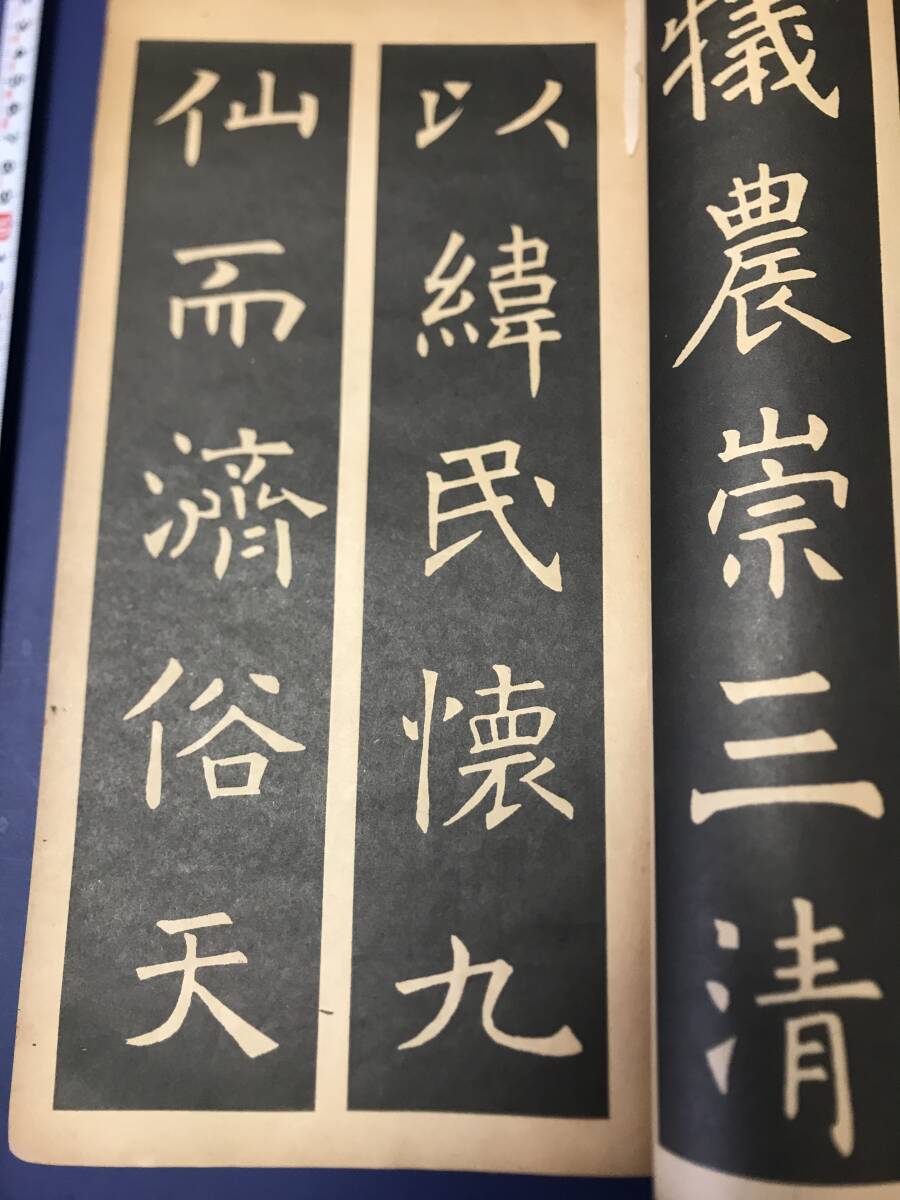 犠農崇三清
以緯民懷九
仙而濟俗天